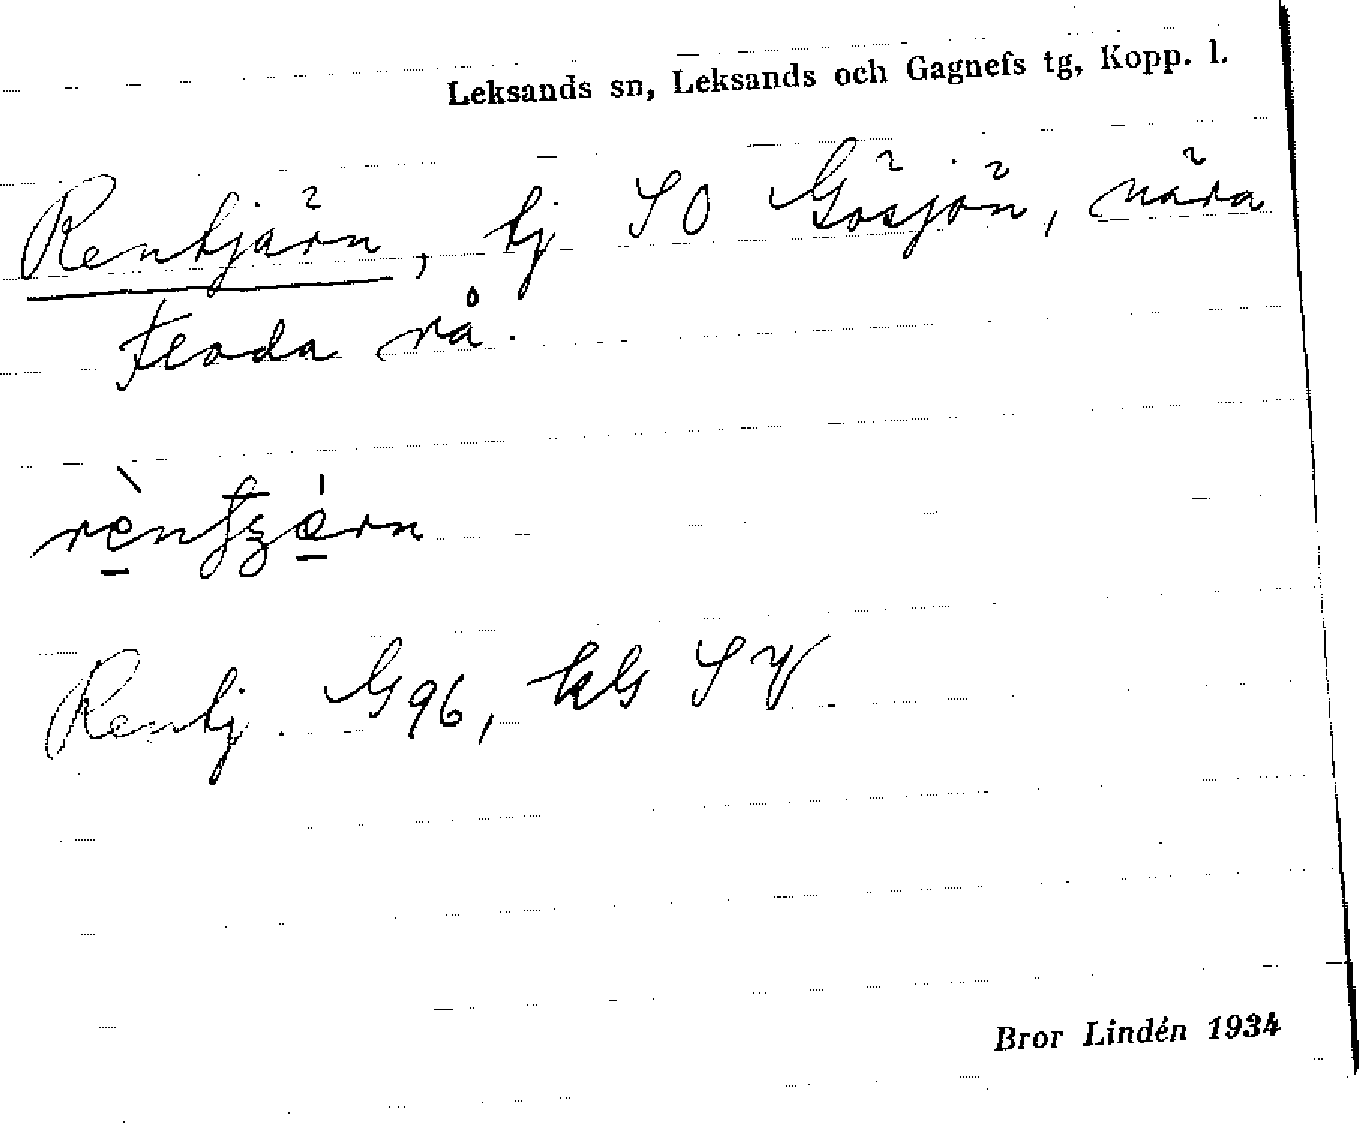 Leksands sn, Leksands och Gagnefs tg, Kopp. l.
Rentjärn, tj SO Gösjön, nära
Feoda rå.
Rentj. G96, kG SV
Bror Lindén 1934